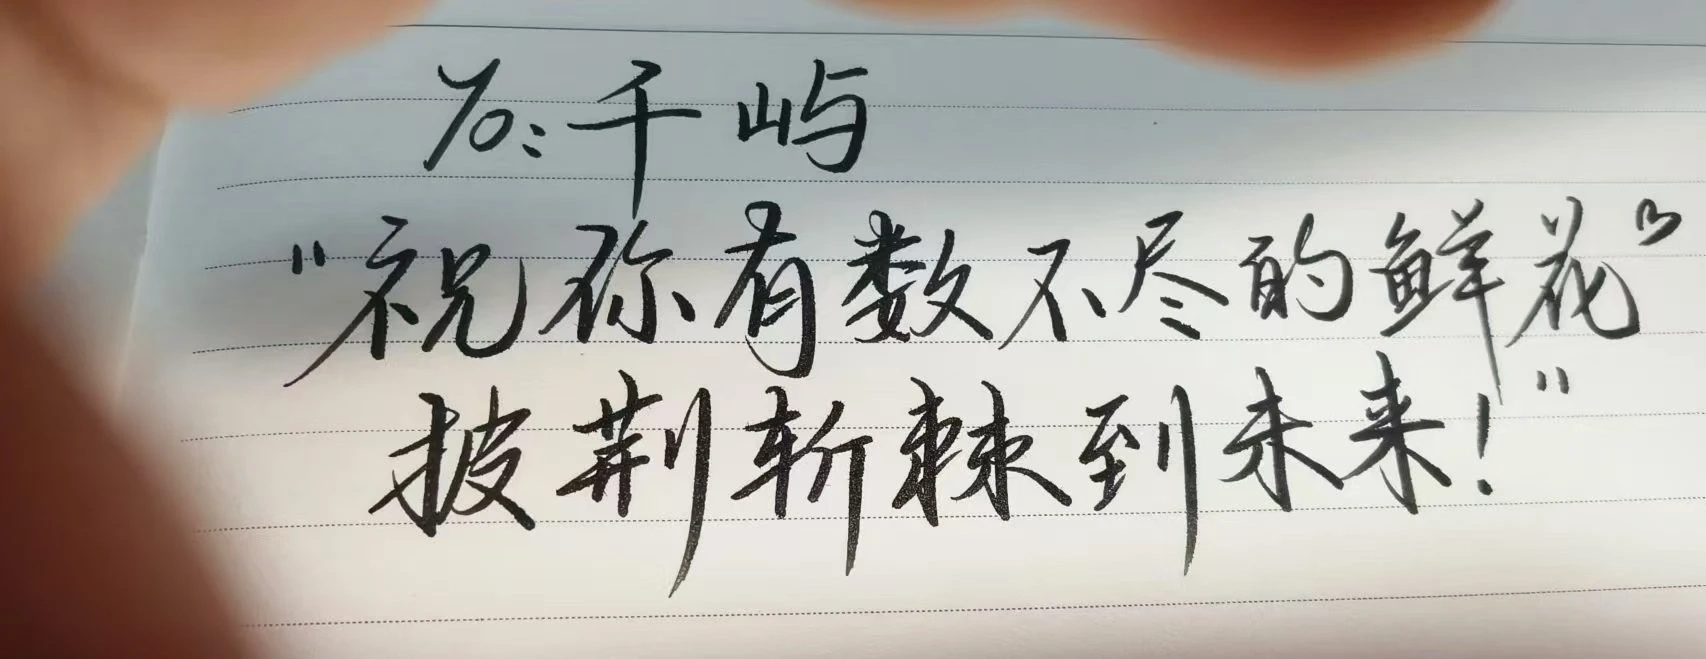 To:千屿
"祝你有数不尽的鲜花"
披荆斩棘到未来!"